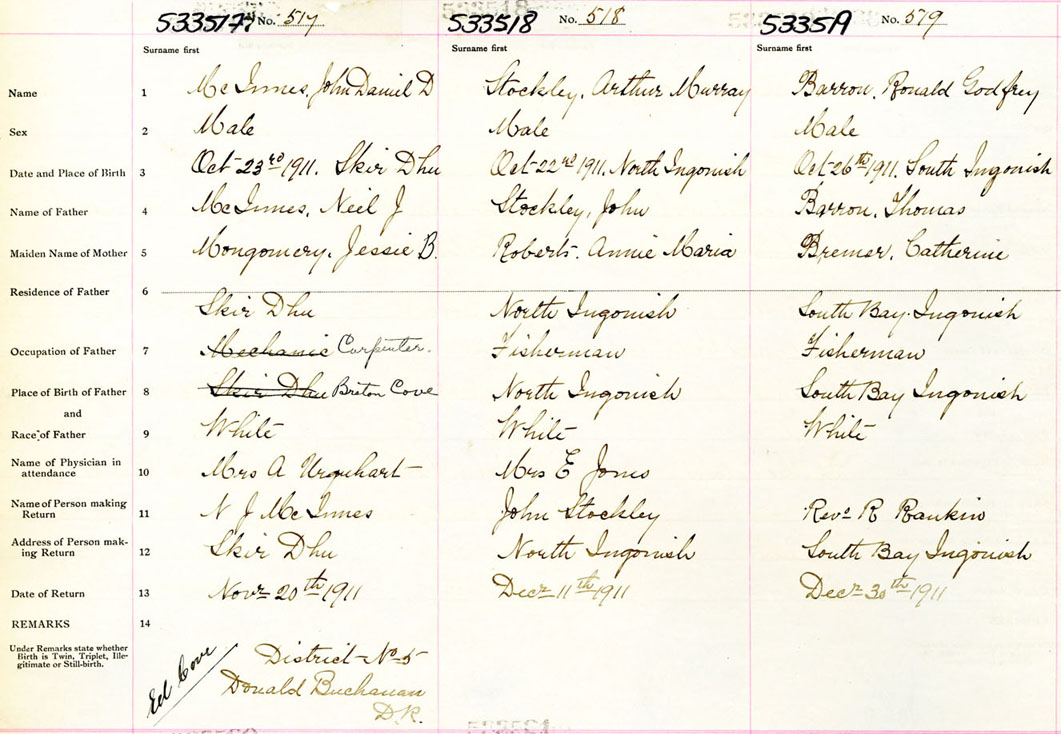 533517 No. 517 533518 No. 518 533519 No. 519
Surname first Surname first Surname first
Name 1 McInnes, John Daniel D Stockley, Arthur Murray Barron, Ronald Godfrey
Sex 2 Male Male Male
Date and Place of Birth 3 Oct 23rd 1911. Skir Dhu Oct 22nd 1911. North Ingonish Oct 26th 1911. South Ingonish
Name of Father 4 McInnes, Neil J Stockley, John Barron, Thomas
Maiden Name of Mother 5 Montgomery, Jessie B. Roberts, Annie Maria Bremer, Catherine
Residence of Father 6
Skir Dhu North Ingonish South Bay Ingonish
Occupation of Father 7 Mechanic Carpenter. Fisherman Fisherman
Place of Birth of Father 8 Skir Dhu Breton Cove North Ingonish South Bay Ingonish
and
Race of Father 9 White White White
Name of Physician in
attendance 10 Mrs A Urquhart Mrs E Jones
Name of Person making
Return 11 N J McInnes John Stockley Revd R Rankin
Address of Person mak-
ing Return 12 Skir Dhu North Ingonish South Bay Ingonish
Date of Return 13 Novr 20th 1911 Decr 11th 1911 Decr 30th 1911
REMARKS 14
Under Remarks state whether
Birth is Twin, Triplet, Ille-
gitimate or Still-birth.
District No 5
Donald Buchanan
D.R.
Ed Cove